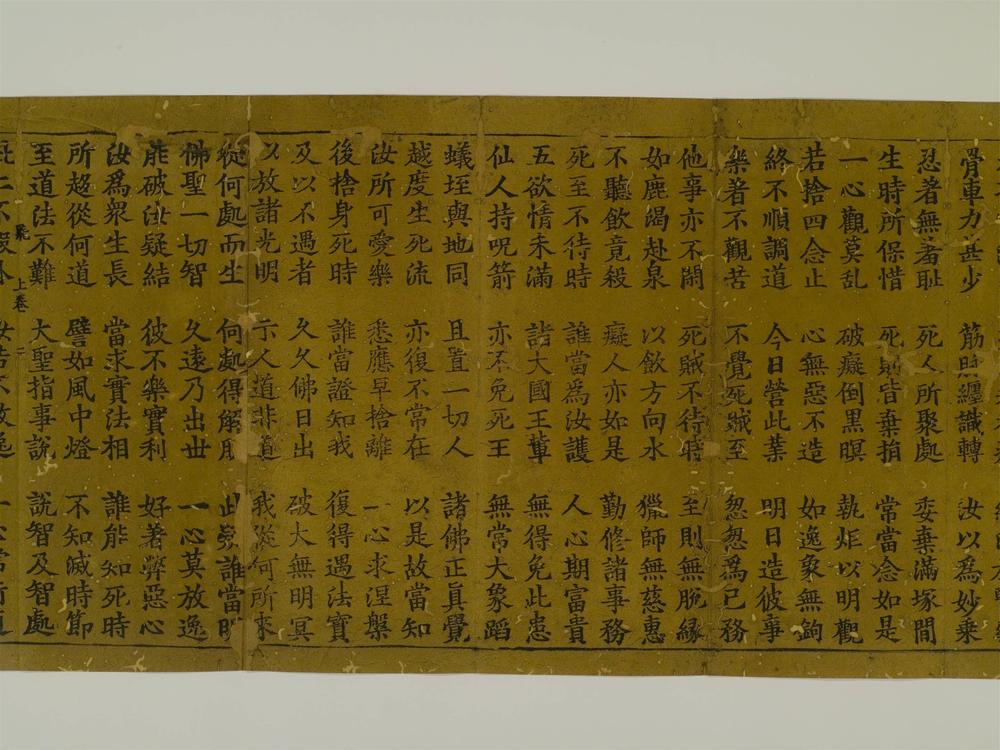 骨車力甚少 筋脉纏識轉 汝以為妙乗
忍著無羞耻 死人所聚處 委棄滿塚間
生時所保惜 死則皆棄捐 常當念如是
一心觀莫乱 破癡倒黒暝 執炬以明觀
若捨四念止 心無惡不造 如逸象無鉤
終不順調道 今日營此業 明日造彼事
樂著不觀苦 不覺死賊至 怱怱為已務
他事亦不閑 死賊不待時 至則無脫縁
如鹿渴赴泉 以飲方向水 獵師無慈惠
不聽飲竟殺 癡人亦如是 勤修諸事務
死至不待時 誰當為汝護 人心期富貴
五欲情未滿 諸大國王軰 無得免此患
仙人持呪箭 亦不免死王 無常大象蹈
蟻垤與地同 且置一切人 諸佛正真覺
越度生死流 亦復不常在 以是故當知
汝所可愛樂 悉應早捨離 一心求涅槃
後捨身死時 誰當證知我 復得遇法寶
及以不遇者 久久佛日出 破大無明冥
以放諸光明 示人道非道 我從何所來
從何處而生 何處得解脫 此疑誰當明
佛聖一切智 久遠乃出世 一心莫放逸
能破汝疑結 彼不樂實利 好著弊惡心
汝為衆生長 當求實法相 誰能知死時
所趣從何道 譬如風中燈 不知滅時節
至道法不難 大聖指事說 說智及智處
上卷
二